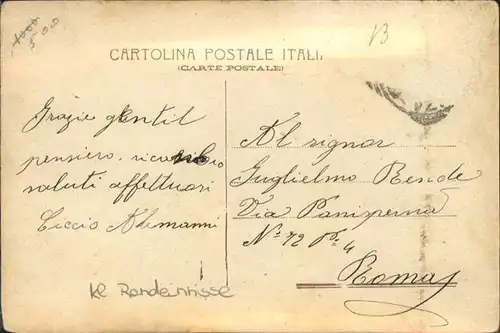 1000
500
13
CARTOLINA POSTALE ITALI
(CARTE POSTALE)
Grazie gentil
pensiero. ricambio
saluti affettuosi
Ciccio Alemanni
Al signor
Guglielmo Rende
Via Panisperna
Nº 72 Pº 4
Roma
kl Randeinrisse